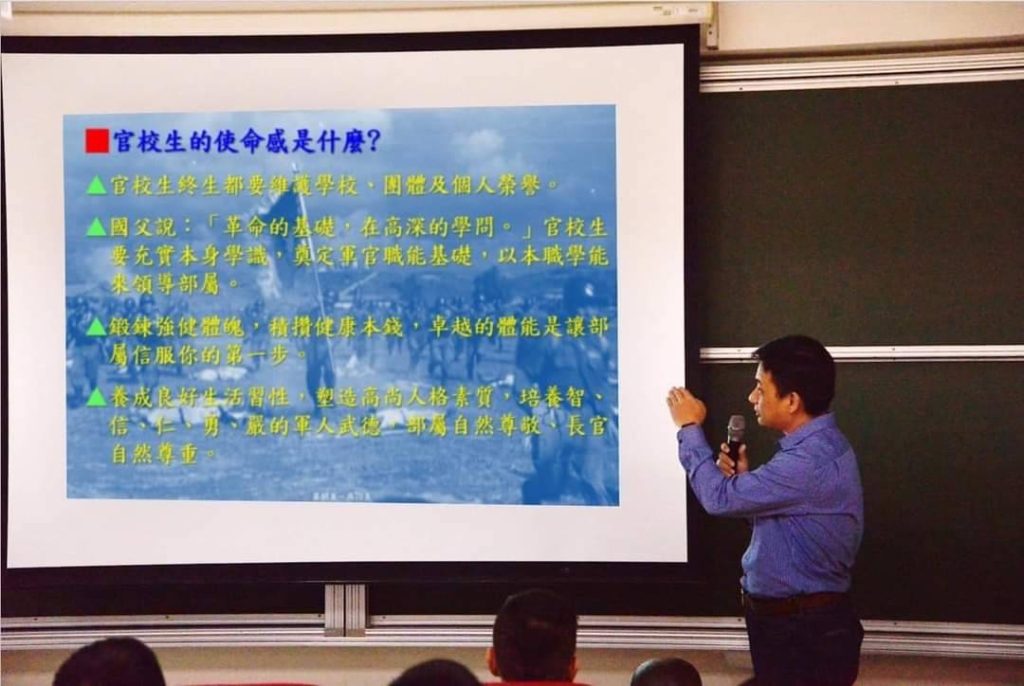 ■官校生的使命感是什麼?
▲官校生終生都要維護學校、團體及個人榮譽。
▲國父說：「革命的基礎，在高深的學問。」官校生
要充實本身學識，奠定軍官職能基礎，以本職學能
來領導部屬。
▲鍛鍊強健體魄，積攢健康本錢，卓越的體能是讓部
屬信服你的第一步。
▲養成良好生活習性，塑造高尚人格素質，培養智、
信、仁、勇、嚴的軍人武德，部屬自然尊敬、長官
自然尊重。